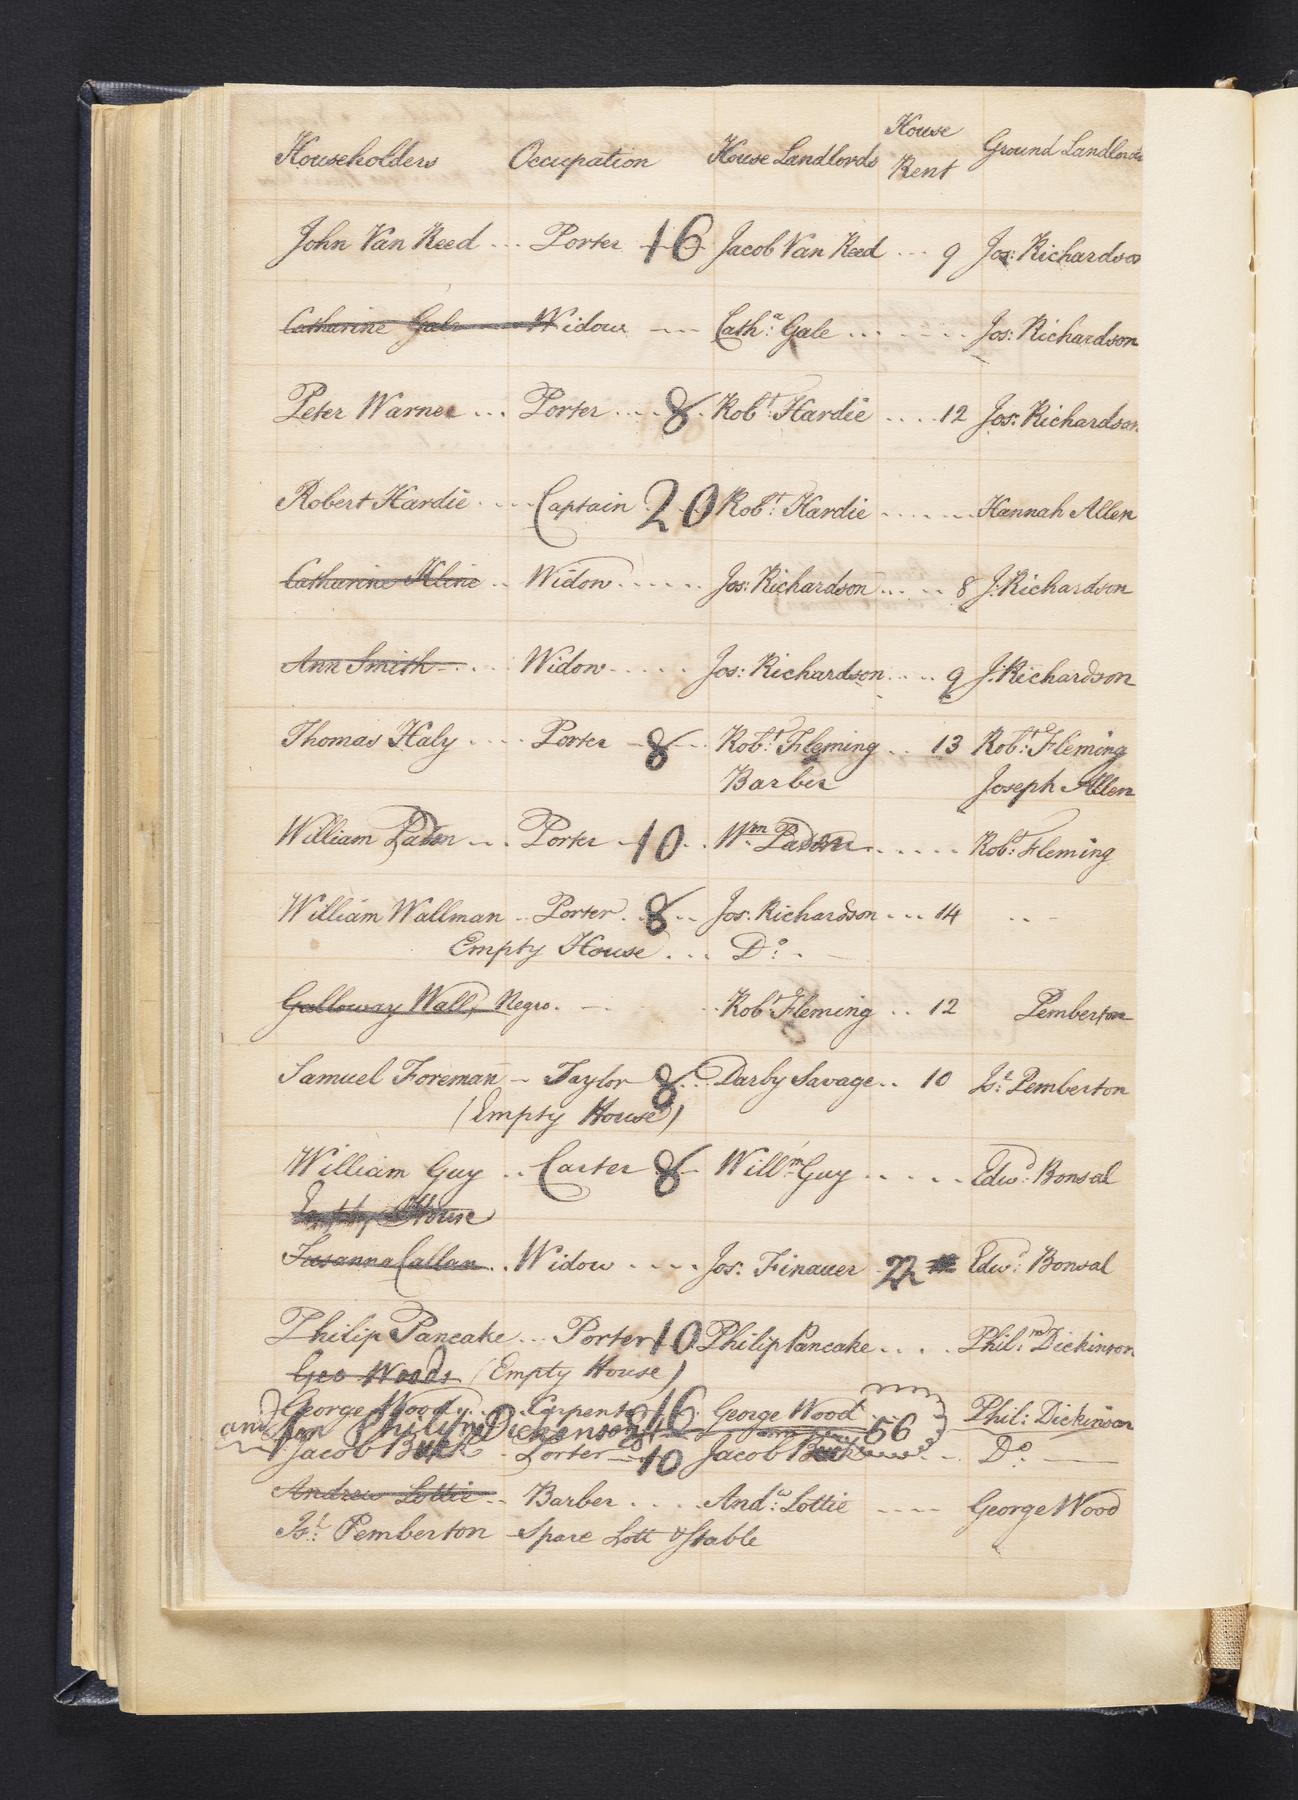 Householders Occupation House Landlords House Rent Ground Landlords
John Van Reed ... Porter 16 Jacob Van Reed ... 9 Jos: Richardson
Catharine Gale Widow --- Cath.a Gale ... Jos: Richardson
Peter Warner ... Porter .... 8 Rob.t Hardie .... 12 Jos: Richardson
Robert Hardie .... Captain 20 Rob.t Hardie ...... Hannah Allen
Catharine Kline .. Widow ...... Jos: Richardson ... 8 J: Richardson
Ann Smith ... Widow ..... Jos: Richardson .... 9 J: Richardson
Thomas Haly .... Porter 8 Rob.t Fleming .. 13 Rob.t Fleming
Barber Joseph Allen
William Paton ... Porter 10 .. W.m Paton ..... Rob.t Fleming
William Wallman .. Porter 8 .. Jos: Richardson ... 14 ...
Empty House ... D.o
Galloway Wall, Negro. Rob.t Fleming .. 12 Pemberton
Samuel Foreman - Taylor 8 .. Darby Savage .. 10 Is.l Pemberton
(Empty House)
William Guy .. Carter 8 Will.m Guy ..... Edw.d Bonsal
Empty House
Susanna Callan .. Widow .... Jos: Finauer 22 Edw.d Bonsal
Philip Pancake ... Porter 10 Philip Pancake .... Phil: Dickinson
Geo Woods (Empty House)
George Wood Carpenter 16 George Wood 56 Phil: Dickinson
and for Philip Dickenson
Jacob Buck - Porter 10 Jacob Buck D.o
Andrew Lottie .. Barber .... And.w Lottie ---- George Wood
Is.l Pemberton Spare Lott & Stable